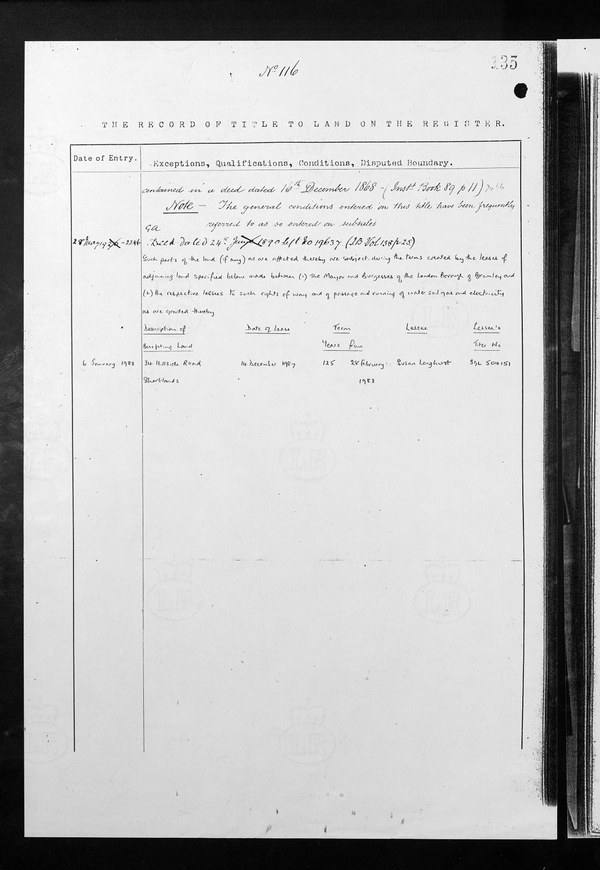 235
No 116
THE RECORD OF TITLE TO LAND ON THE REGISTER.
Date of Entry.
Exceptions, Qualifications, Conditions, Disputed Boundary.
contained in a deed dated 16th December 1868 - (Inst. Book 89 p 11)
Note - The general conditions entered on this title have been frequently
referred to as so entered on subsales
Deed dated 24th 1890
Such parts of the land (if any) as are affected thereby are subject during the terms created by the leases of
adjoining land specified below made between (1) The Mayor and Burgesses of the London Borough of Bromley and
(2) the respective lessees to such rights of way and of passage and running of water soil gas and electricity
as are granted thereby
Description of Date of lease Term Lessee Lessee's
Benefiting Land Years from Title No
6 January 1988 34 Hillside Road 14 December 1987 125 28 February Susan Longhurst SGL 504151
Shortlands 1983